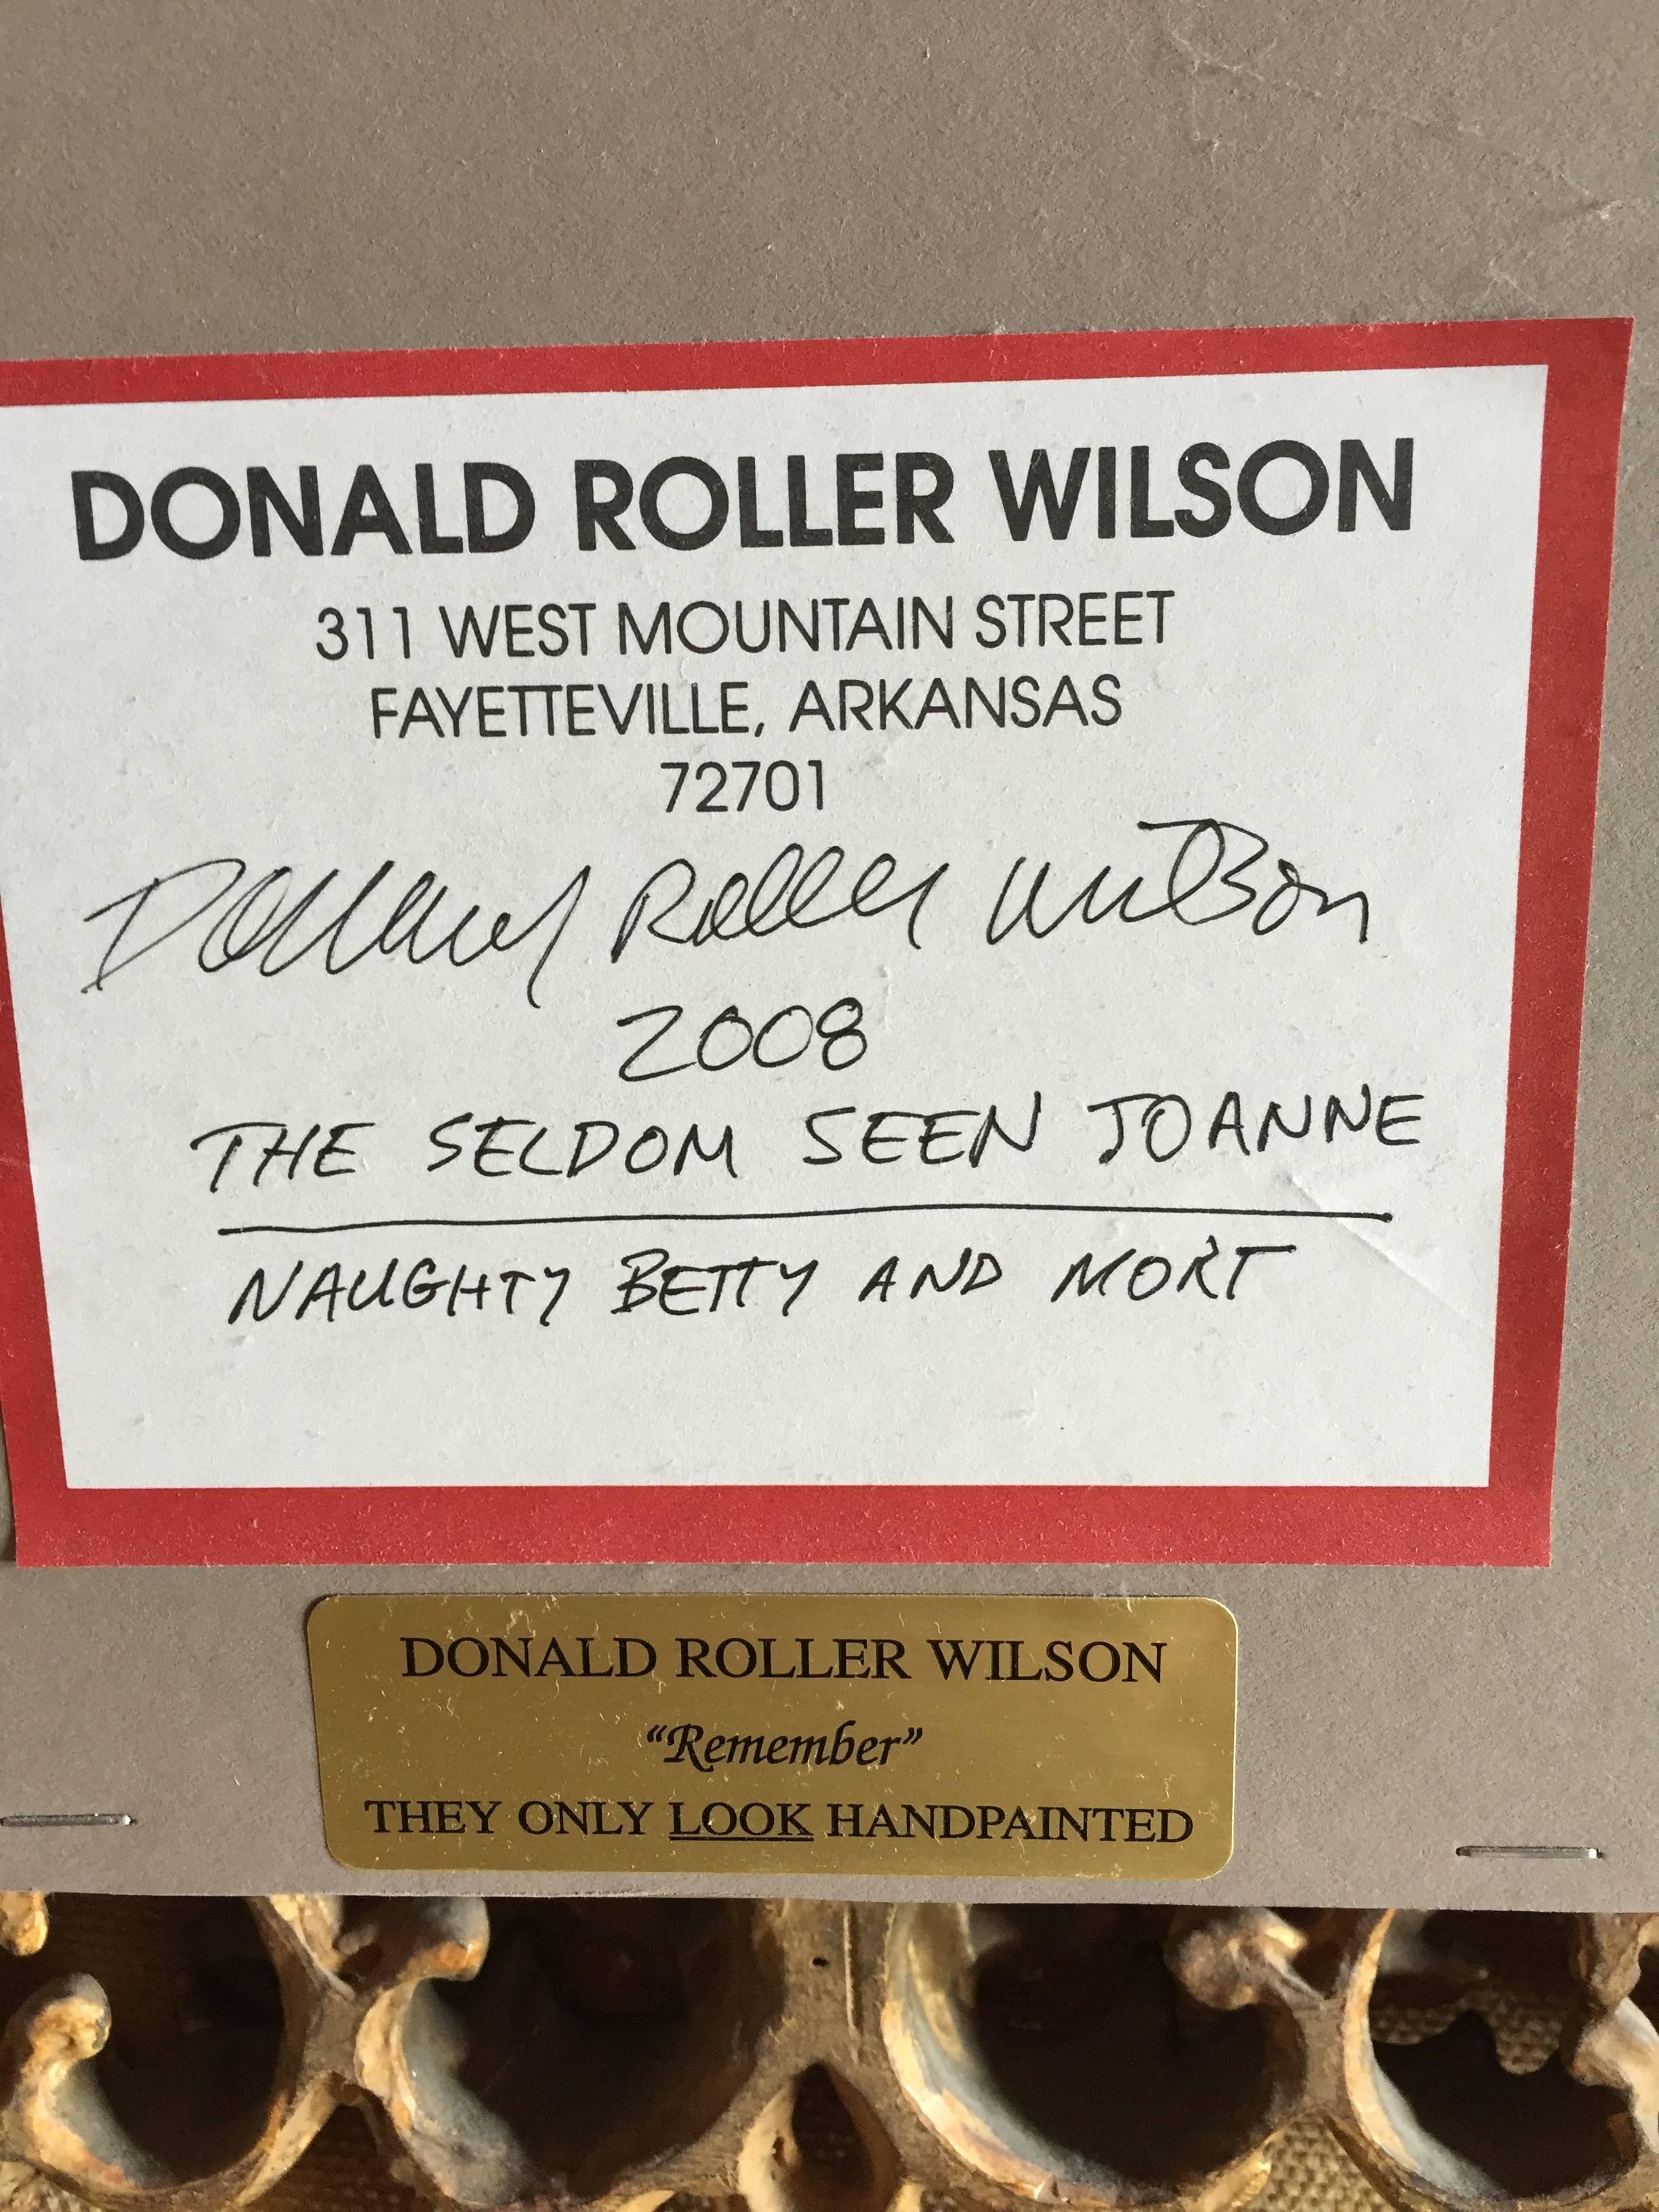 DONALD ROLLER WILSON
311 WEST MOUNTAIN STREET
FAYETTEVILLE, ARKANSAS
72701
Donald Roller Wilson
2008
THE SELDOM SEEN JOANNE
NAUGHTY BETTY AND MORT
DONALD ROLLER WILSON
“Remember”
THEY ONLY LOOK HANDPAINTED